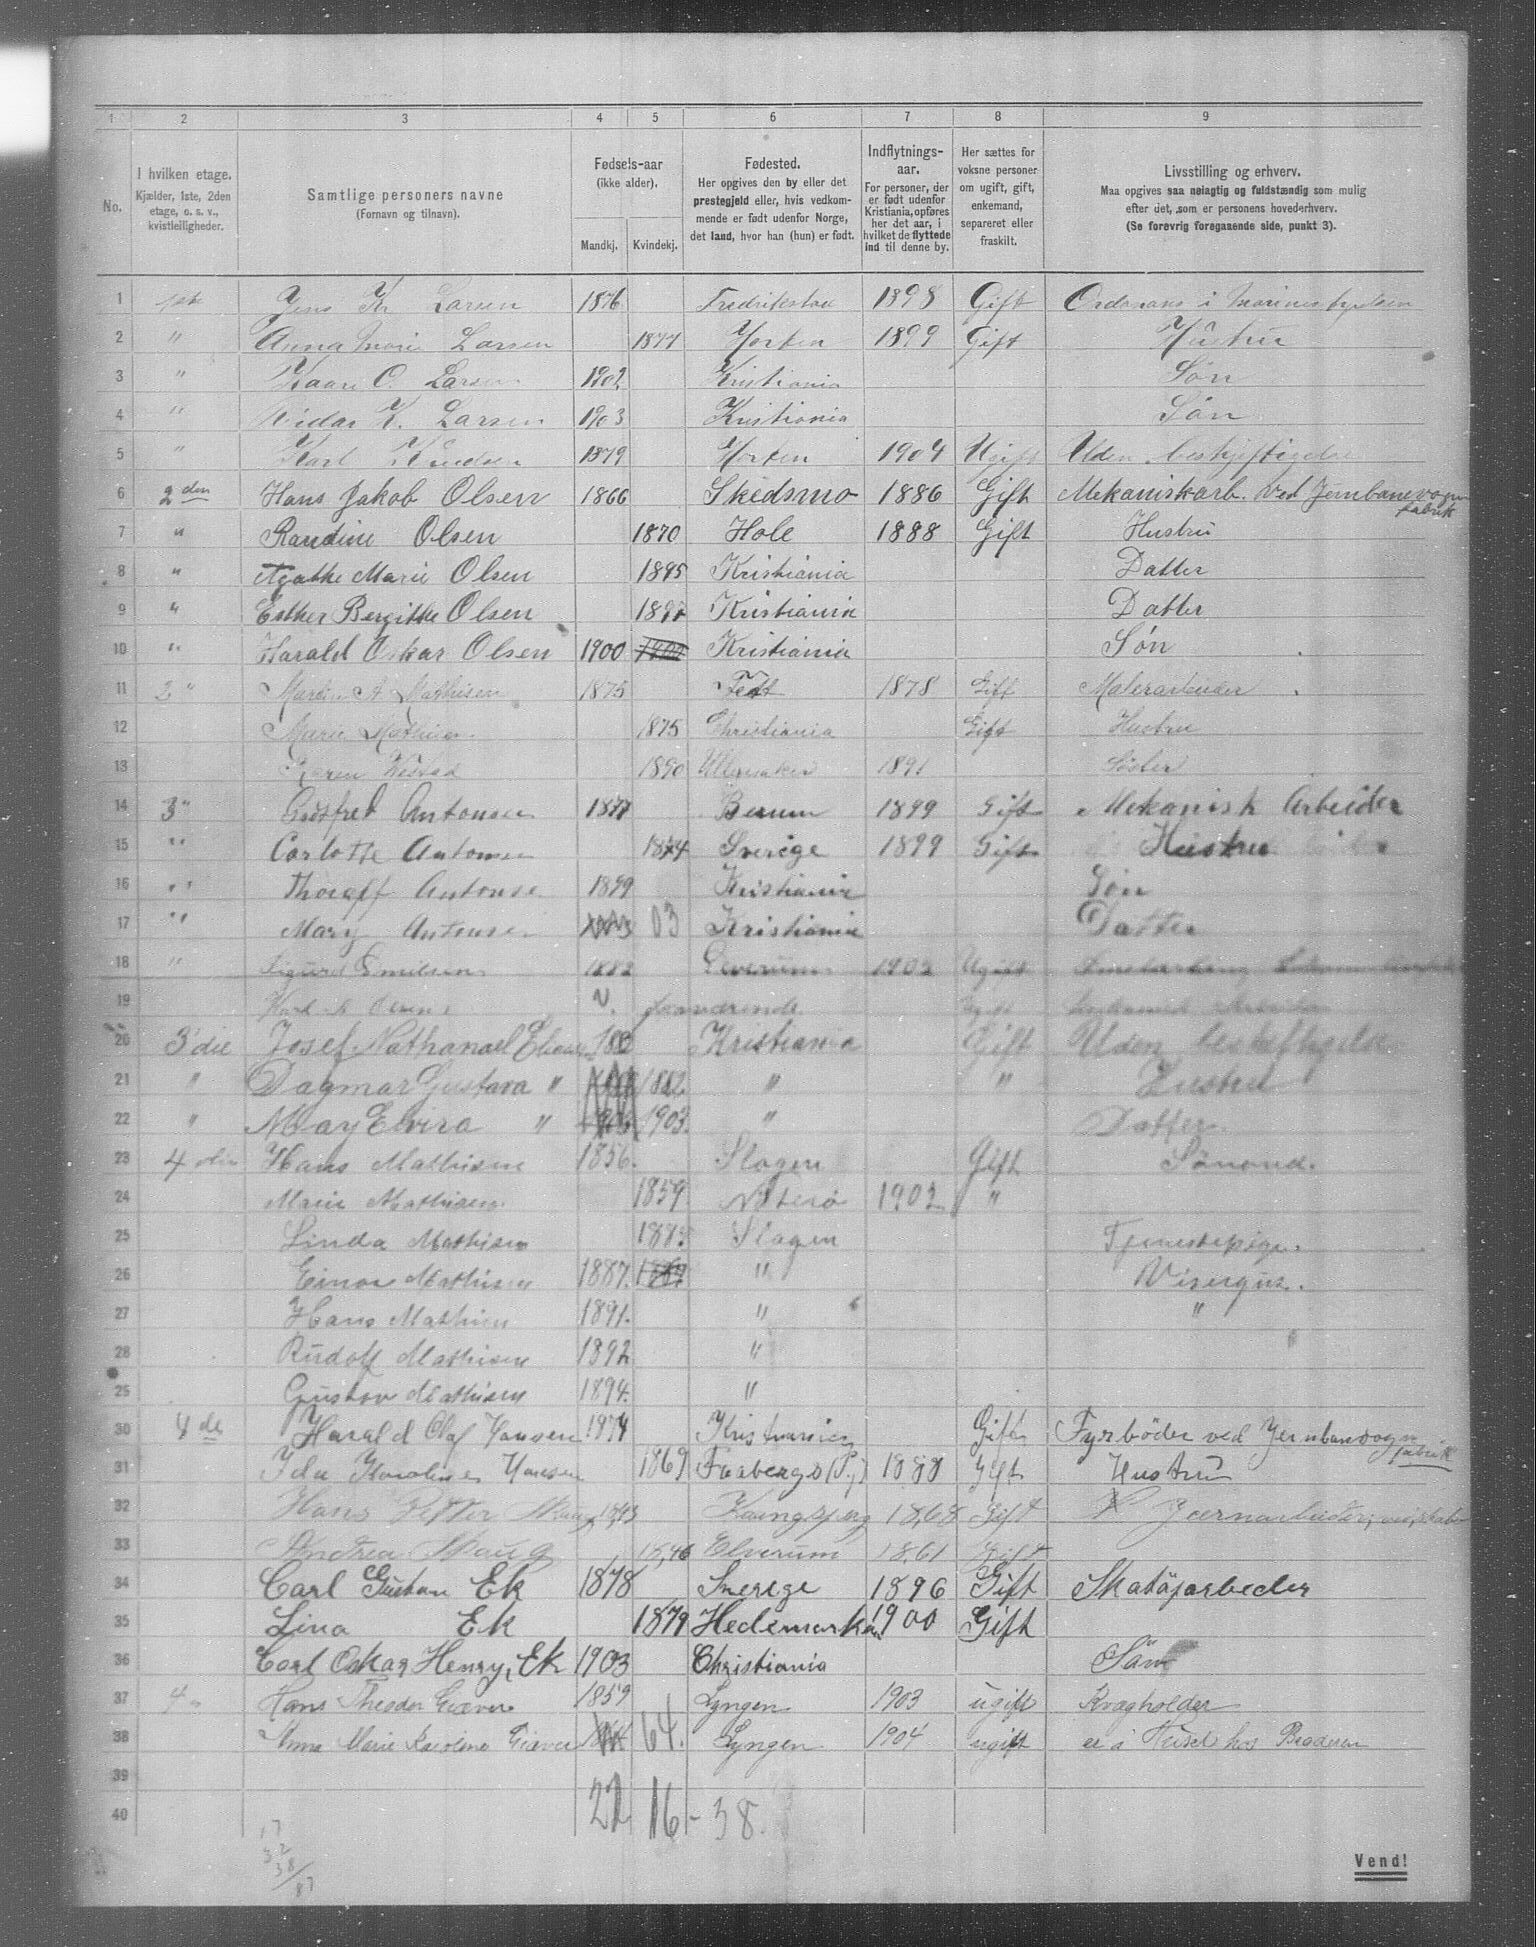 1 2 3 4 5 6 7 8 9
No.
I hvilken etage.
Kjælder, 1ste, 2den
etage, o. s. v.,
kvistleiligheder.
Samtlige personers navne
(Fornavn og tilnavn).
Fødsels-aar
(ikke alder).
Mandkj. Kvindekj.
Fødested.
Her opgives den by eller det
prestegjeld eller, hvis vedkom-
mende er født udenfor Norge,
det land, hvor han (hun) er født.
Indflytnings-
aar.
For personer, der
er født udenfor
Kristiania, opføres
her det aar, i
hvilket de flyttede
ind til denne by.
Her sættes for
voksne personer
om ugift, gift,
enkemand,
separeret eller
fraskilt.
Livsstilling og erhverv.
Maa opgives saa nøiagtig og fuldstændig som mulig
efter det, som er personens hovederhverv.
(Se forøvrig foregaaende side, punkt 3).
1 1ste Jens Kr Larsen 1876 Fredrikstad 1898 Gift Ordonans i Marinestyrelsen
2 " Anna Marie Larsen 1877 Horten 1899 Gift Hustru
3 " Kaare O. Larsen 1902 Kristiania Søn
4 " Vidar K. Larsen 1903 Kristiania Søn
5 " Karl Knudsen 1879 Horten 1904 Ugift Uden beskjeftigelse
6 2den Hans Jakob Olsen 1866 Skedsmo 1886 Gift Mekaniskarb. ved Jernbanevogn
fabrik
7 " Randine Olsen 1870 Hole 1888 Gift Hustru
8 " Agathe Marie Olsen 1895 Kristiania Datter
9 " Esther Bergitte Olsen Kristiania Datter
10 " Harald Oskar Olsen 1900 Kristiania Søn
11 " Martin A Mathisen 1875 Fet 1878 Gift Malerarbeider
12 Marie Mathisen 1875 Christiania Gift Hustru
13 Karen 1890 Ullensaker 1891 Søster
14 3" Godtfred Antonsen 1877 Berum 1899 Gift Mekanisk Arbeider
15 " Carlotte Antonsen 1874 Sverige 1899 Gift Hustru
16 " Thoralf Antonse 1899 Kristiania Søn
17 " Mary Antonsen 03 Kristiania Datter
18 " Sigurd Emilsen 1882 Elverum 1903 Ugift
19 Karl Ugift
20 3'die Josef Nathanael Kristiania Gift Uden beskeftigelse
21 " Dagmar Gustava " 1882 " " Hustru
22 " May Elvira " 1903 " Datter
23 4 Hans Mathisen 1856. Slagen Gift Sömand.
24 Marie Mathisen 1859 Nøterø 1902 "
25 Linda Mathisen Slagen Tjenestepige.
26 Einar Mathisen 1887. " Visergut.
27 Hans Mathisen 1891. " "
28 Rudolf Mathisen 1892 " "
29 Gustav Mathisen 1894. "
30 4de Harald Olaf Hansen 1874 Kristiania Gift Fyrbøder ved Jernbanevogn
fabrik
31 Ida Karoline Hansen 1869 1888 Gift Hustru
32 Hans Petter Haug 1843 Kongsberg 1868 Gift Jernarbeider,
33 Andrea Haug 1846 Elverum 1861 Gift
34 Carl Gustav Ek 1878 Sverige 1896 Gift Skotöjarbeder
35 Lina Ek 1879 Hedemarken 1900 Gift
36 Carl Oskar Henry, Ek 1903 Christiania Sön
37 4" Hans Theodor Giæver 1859 Lyngen 1903 ugift Kvægholder
38 Anna Marie Karoline Giæver 64. Lyngen 1904 ugift er i Huset hos Broderen
39
40 22 16 - 38.
17
32
38/87
Vend!